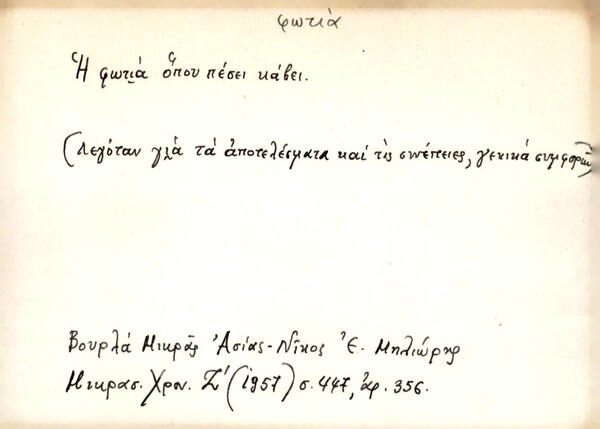 φωτιά
Ἡ φωτιά ὅπου πέσει κάβει.
(Λεγόταν γιά τά ἀποτελέσματα καί τίς συνέπειες, γενικά συμφορῶν)
Βουρλά Μικρᾶς Ἀσίας - Νῖκος Ἐ. Μηλιώρης
Μικρασ. Χρον. Ζ' (1957) σ. 447, ἀρ. 356.